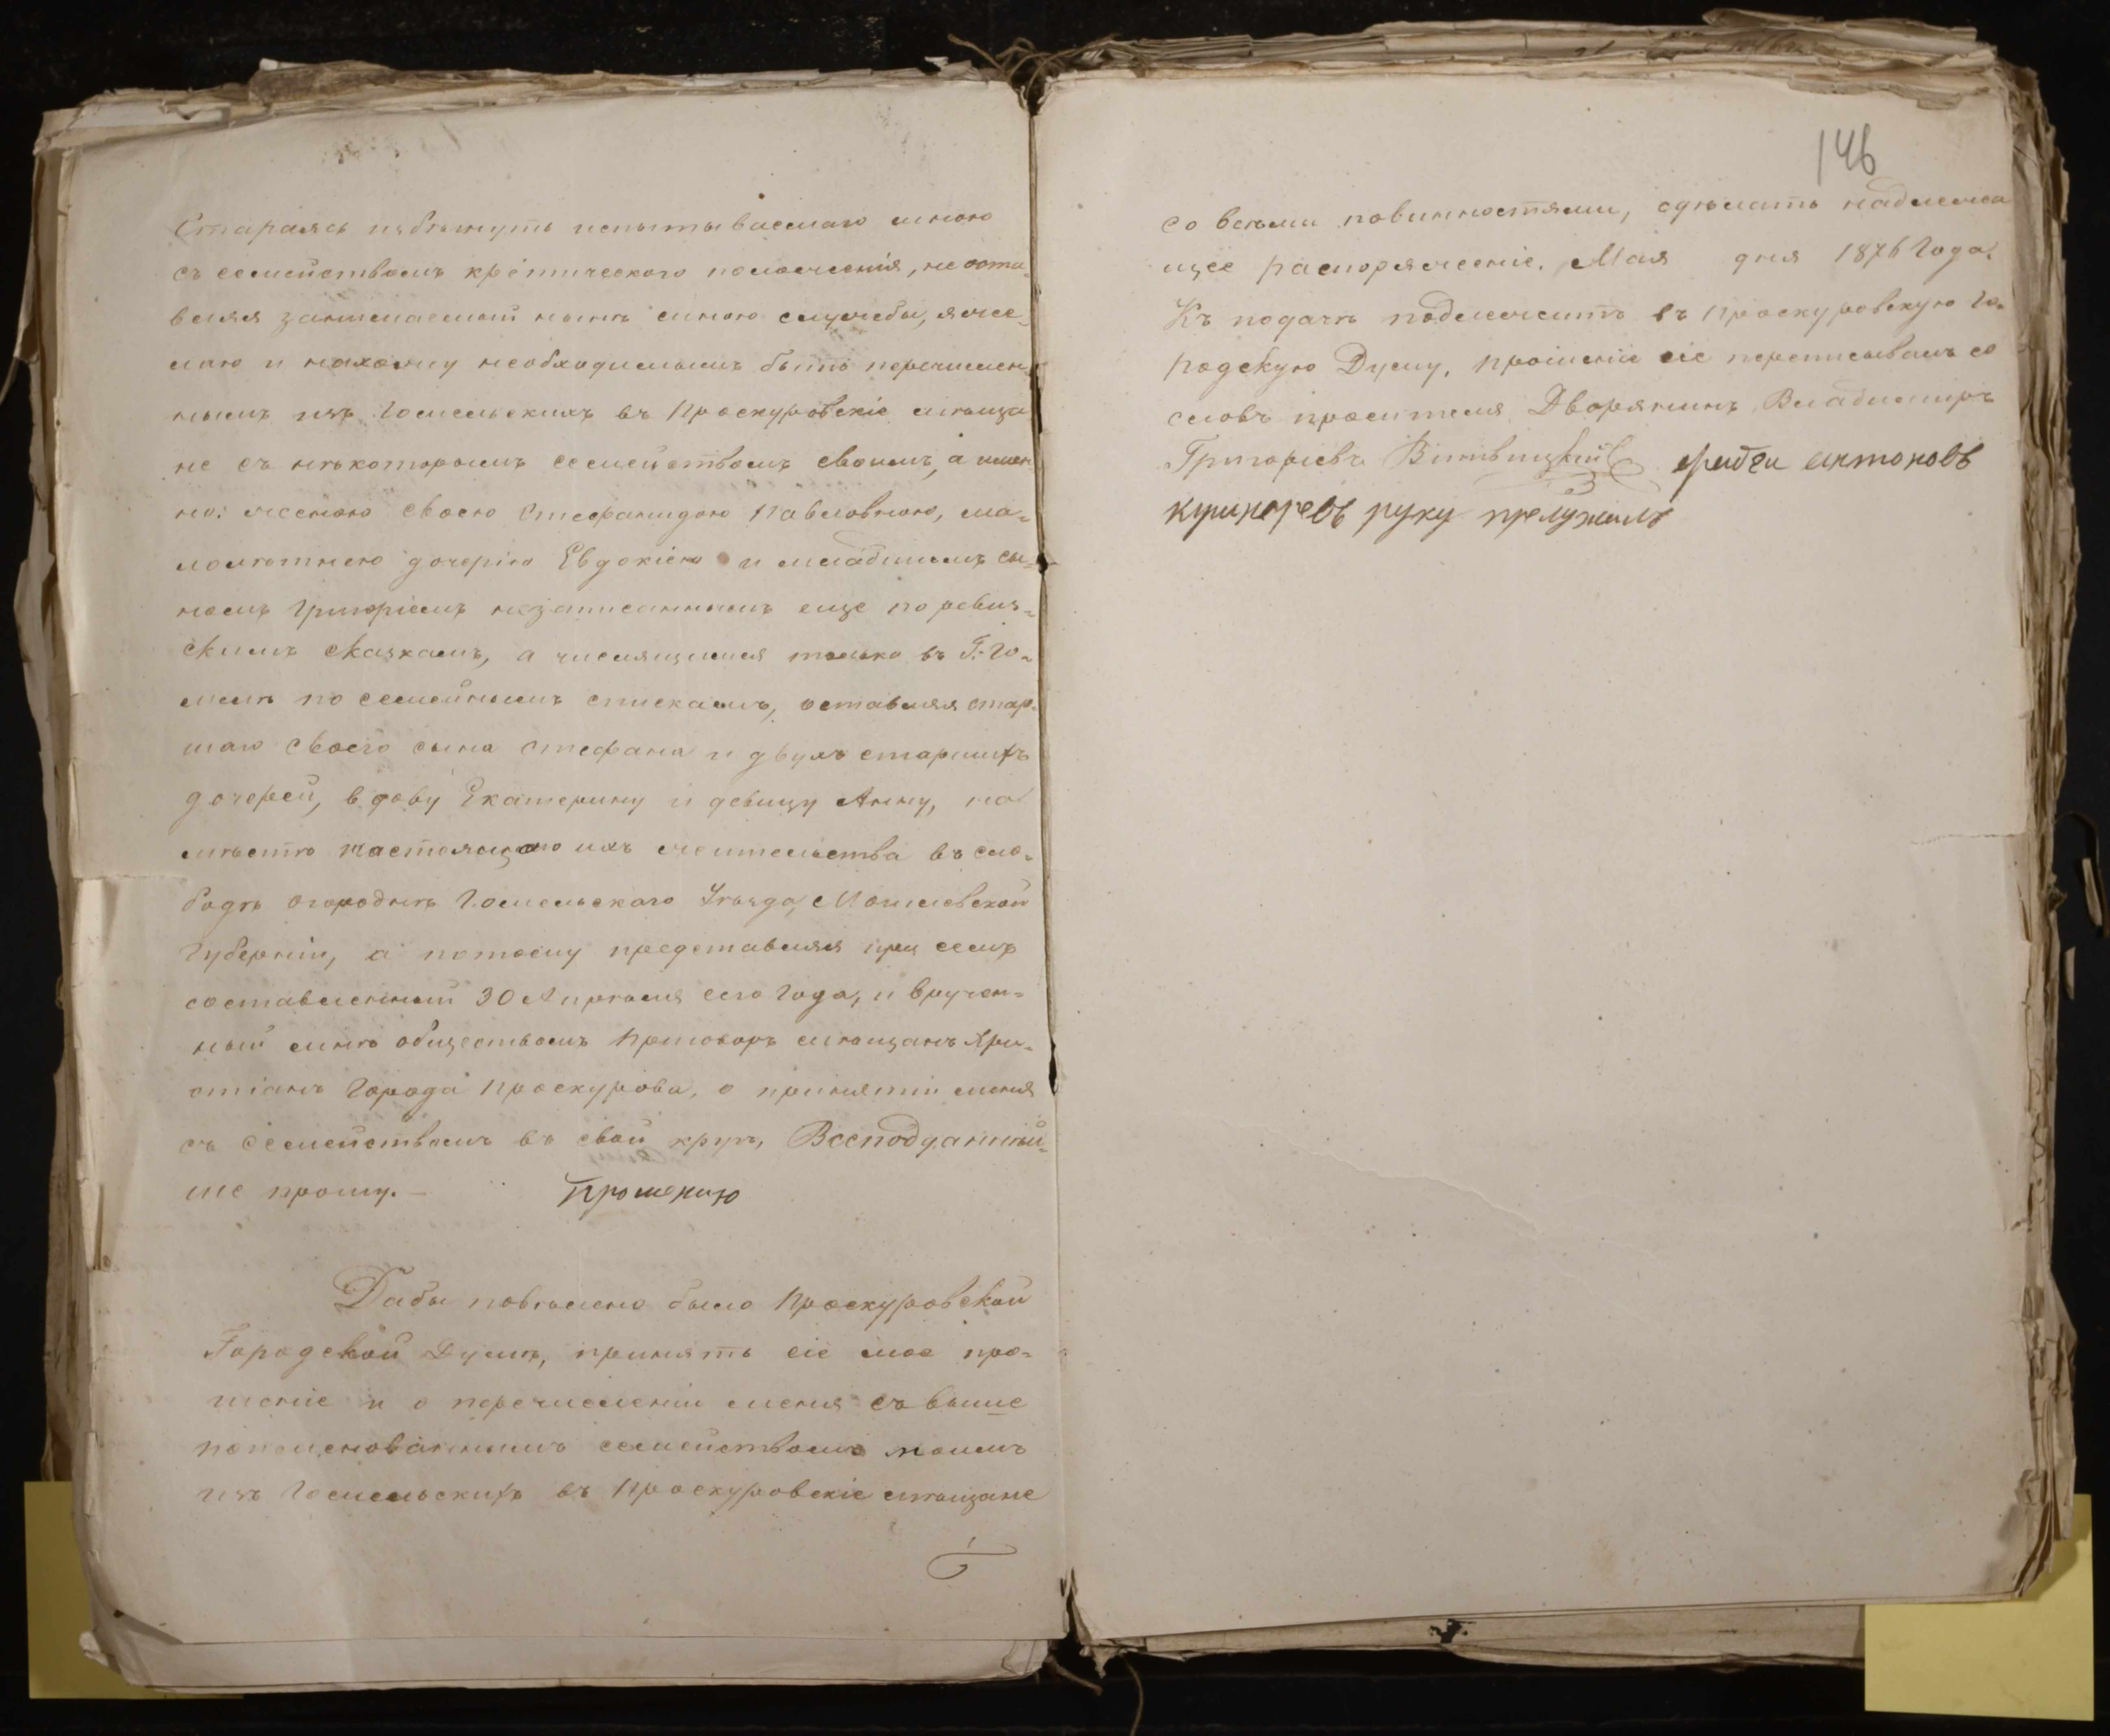 Стараясь избѣгнуть испытываемаго мною
съ семействомъ критическаго положенія, не оста-
вляя занимаемый нынѣ мною службы, я же-
лаю и нахожу необходимымъ быть перечислен-
нымъ изъ Гомельскихъ въ Проскуровскіе мѣща
не съ нѣкоторымъ семействомъ своимъ, а имен
но: женою своею Стефанидою Павловною, ма-
лолѣтнею дочерію Евдокіею и младшимъ сы-
номъ Григоріемъ незаписаннымъ еще по ревиз-
скимъ сказкамъ, а числящимся только въ Г. Го-
мелѣ по семейнымъ спискамъ, оставляя стар-
шаго своего сына Стефана и двухъ старшихъ
дочерей, вдову Екатерину и девицу Анну, на
мѣсто настоящаго ихъ жительства въ сло-
бодѣ огороднѣ Гомельскаго Уѣзда, Могилевской
Губерніи, а потому представляя при семъ
составленный 30 Апрѣля сего Года, и вручен-
ный мнѣ обществомъ Приговоръ мѣщанъ Хри-
стіанъ Города Проскурова, о принятіи меня
съ семействомъ въ свой кругъ, Всеподданнѣй-
ше прошу. — Прошению
Дабы повѣлено было Проскуровской
Городской Думѣ, принять сіе мое про-
шеніе и о перечисленіи меня съ выше
поименованнымъ семействомъ моимъ
изъ Гомельскихъ въ Проскуровскіе мѣщане
146
со всѣми повинностями, сдѣлать надлежа
щее распоряженіе. Мая дня 1876 Года.
Къ подачѣ подлежитъ въ Проскуровскую Го-
родскую Думу, прошеніе сіе переписывалъ со
словъ просителя Дворянинъ Владимиръ
Григорьевъ антоновъ
руку прелужилъ